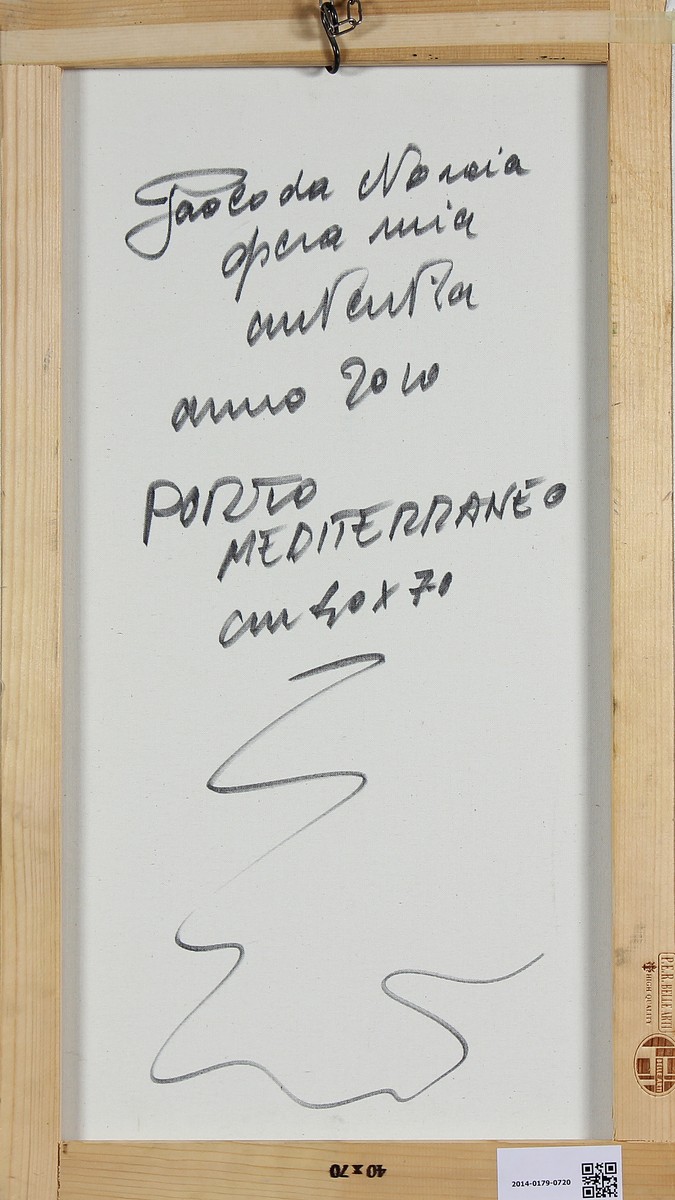 Paolo da Norcia
opera mia
autentica
anno 2010
PORTO
MEDITERRANEO
cm 40 x 70
P.E.R. BELLE ARTI
HIGH QUALITY
40 x 70
2014-0179-0720